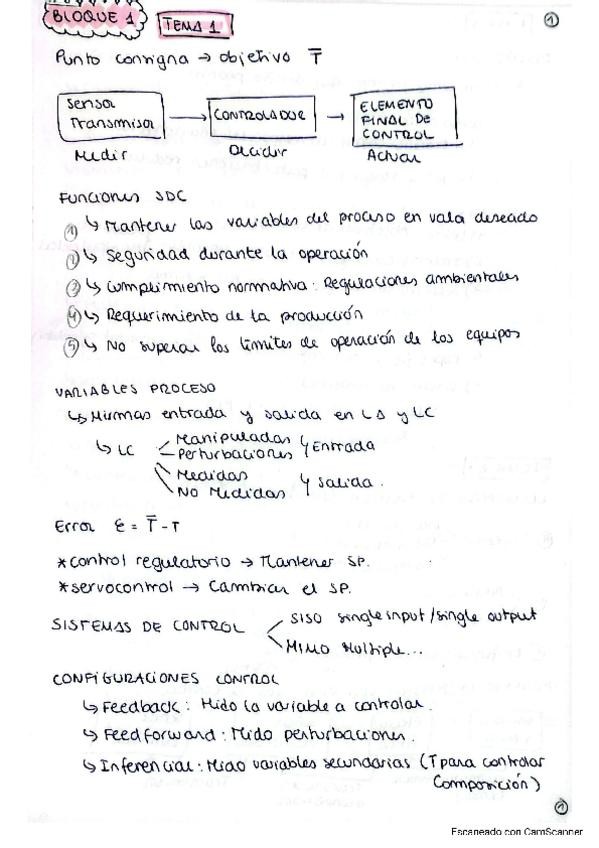 BLOQUE 1 TEMA 1 ①
Punto consigna → objetivo T̅
Sensor Transmisor → CONTROLADOR → ELEMENTO FINAL DE CONTROL
Medir Decidir Actuar
FUNCIONES SDC
① ↳ Mantener las variables del proceso en valor deseado
② ↳ Seguridad durante la operación
③ ↳ Cumplimiento normativa: Regulaciones ambientales
④ ↳ Requerimiento de la producción
⑤ ↳ No superar los límites de operación de los equipos
VARIABLES PROCESO
↳ Mismas entrada y salida en LA y LC
↳ LC Manipuladas
Perturbaciones } Entrada
Medidas
No Medidas } Salida.
Error ε = T̅ - T
*control regulatorio → Mantener SP.
*servocontrol → Cambiar el SP.
SISTEMAS DE CONTROL SISO single input/single output
MIMO Multiple...
CONFIGURACIONES CONTROL
↳ Feedback: Mido la variable a controlar.
↳ Feedforward: Mido perturbaciones.
↳ Inferencial: Mido variables secundarias (T para controlar
Composición)
①
Escaneado con CamScanner